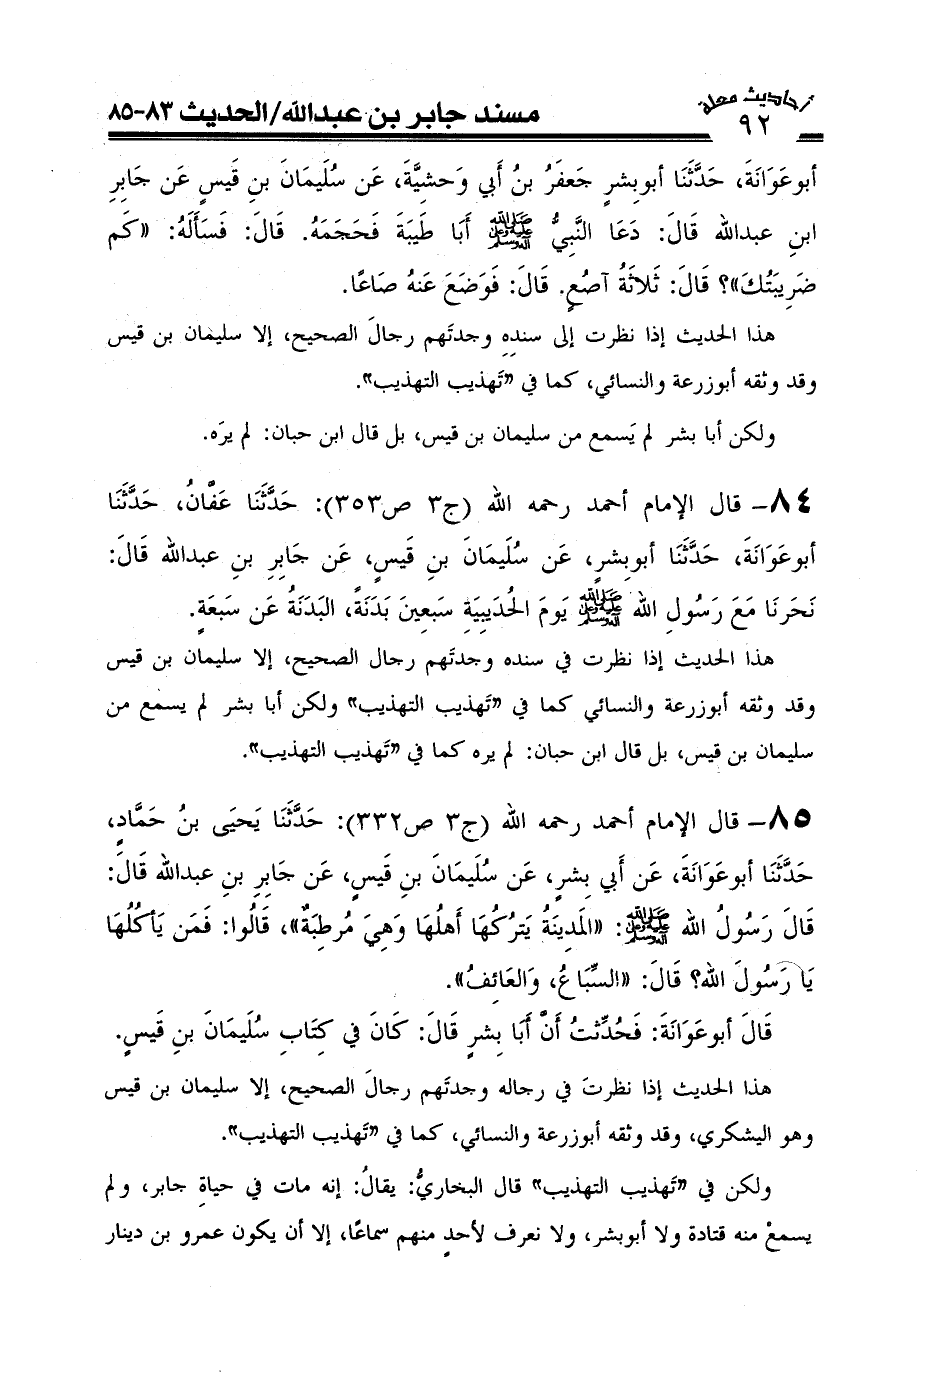 أحاديث معلة
٩٢
مسند جابر بن عبدالله/الحديث ٨٣-٨٥
أبوعَوَانَةَ، حَدَّثَنَا أبوبِشرٍ جَعفَرُ بنُ أَبي وَحشيَّةَ، عَن سُلَيمَانَ بنِ قَيسٍ عَن جَابِرِ
ابنِ عبدالله قَالَ: دَعَا النَّبيُّ ﷺ أَبَا طَيبَةَ فَحَجَمَهُ. قَالَ: فَسَأَلَهُ: «كَم
ضَرِيبَتُكَ»؟ قَالَ: ثَلاثَةُ آصُعٍ. قَالَ: فَوَضَعَ عَنهُ صَاعًا.
هذا الحديث إذا نظرت إلى سندِهِ وجدتَهم رجالَ الصحيح، إلا سليمان بن قيس
وقد وثقه أبوزرعة والنسائي، كما في «تَهذيب التهذيب».
ولكن أبا بشر لم يَسمع من سليمان بن قيس، بل قال ابن حبان: لم يرَه.
٨٤- قال الإمام أحمد رحمه الله (ج٣ ص٣٥٣): حَدَّثَنَا عَفَّانُ، حَدَّثَنَا
أبوعَوَانَةَ، حَدَّثَنَا أبوبِشرٍ، عَن سُلَيمَانَ بنِ قَيسٍ، عَن جَابِرِ بنِ عبدالله قَالَ:
نَحَرنَا مَعَ رَسُولِ الله ﷺ يَومَ الحُدَيبِيَةِ سَبعِينَ بَدَنَةً، البَدَنَةُ عَن سَبعَةٍ.
هذا الحديث إذا نظرت في سنده وجدتَهم رجال الصحيح، إلا سليمان بن قيس
وقد وثقه أبوزرعة والنسائي كما في «تَهذيب التهذيب» ولكن أبا بشر لم يسمع من
سليمان بن قيس، بل قال ابن حبان: لم يره كما في «تَهذيب التهذيب».
٨٥- قال الإمام أحمد رحمه الله (ج٣ ص٣٣٢): حَدَّثَنَا يَحيَى بنُ حَمَّادٍ،
حَدَّثَنَا أبوعَوَانَةَ، عَن أَبي بِشرٍ، عَن سُلَيمَانَ بنِ قَيسٍ، عَن جَابِرِ بنِ عبدالله قَالَ:
قَالَ رَسُولُ الله ﷺ: «المَدِينَةُ يَترُكُهَا أَهلُهَا وَهِيَ مُرطِبَةٌ»، قَالُوا: فَمَن يَأكُلُهَا
يَا رَسُولَ الله؟ قَالَ: «السِّبَاعُ، وَالعَائِفُ».
قَالَ أبوعَوَانَةَ: فَحُدِّثتُ أَنَّ أَبَا بِشرٍ قَالَ: كَانَ في كِتَابِ سُلَيمَانَ بنِ قَيسٍ.
هذا الحديث إذا نظرتَ في رجاله وجدتَهم رجالَ الصحيح، إلا سليمان بن قيس
وهو اليشكري، وقد وثقه أبوزرعة والنسائي، كما في «تَهذيب التهذيب».
ولكن في «تَهذيب التهذيب» قال البخاريُّ: يقالُ: إنه مات في حياةِ جابر، ولم
يسمعْ منه قتادة ولا أبوبشر، ولا نعرف لأحدٍ منهم سماعًا، إلا أن يكون عمرو بن دينار